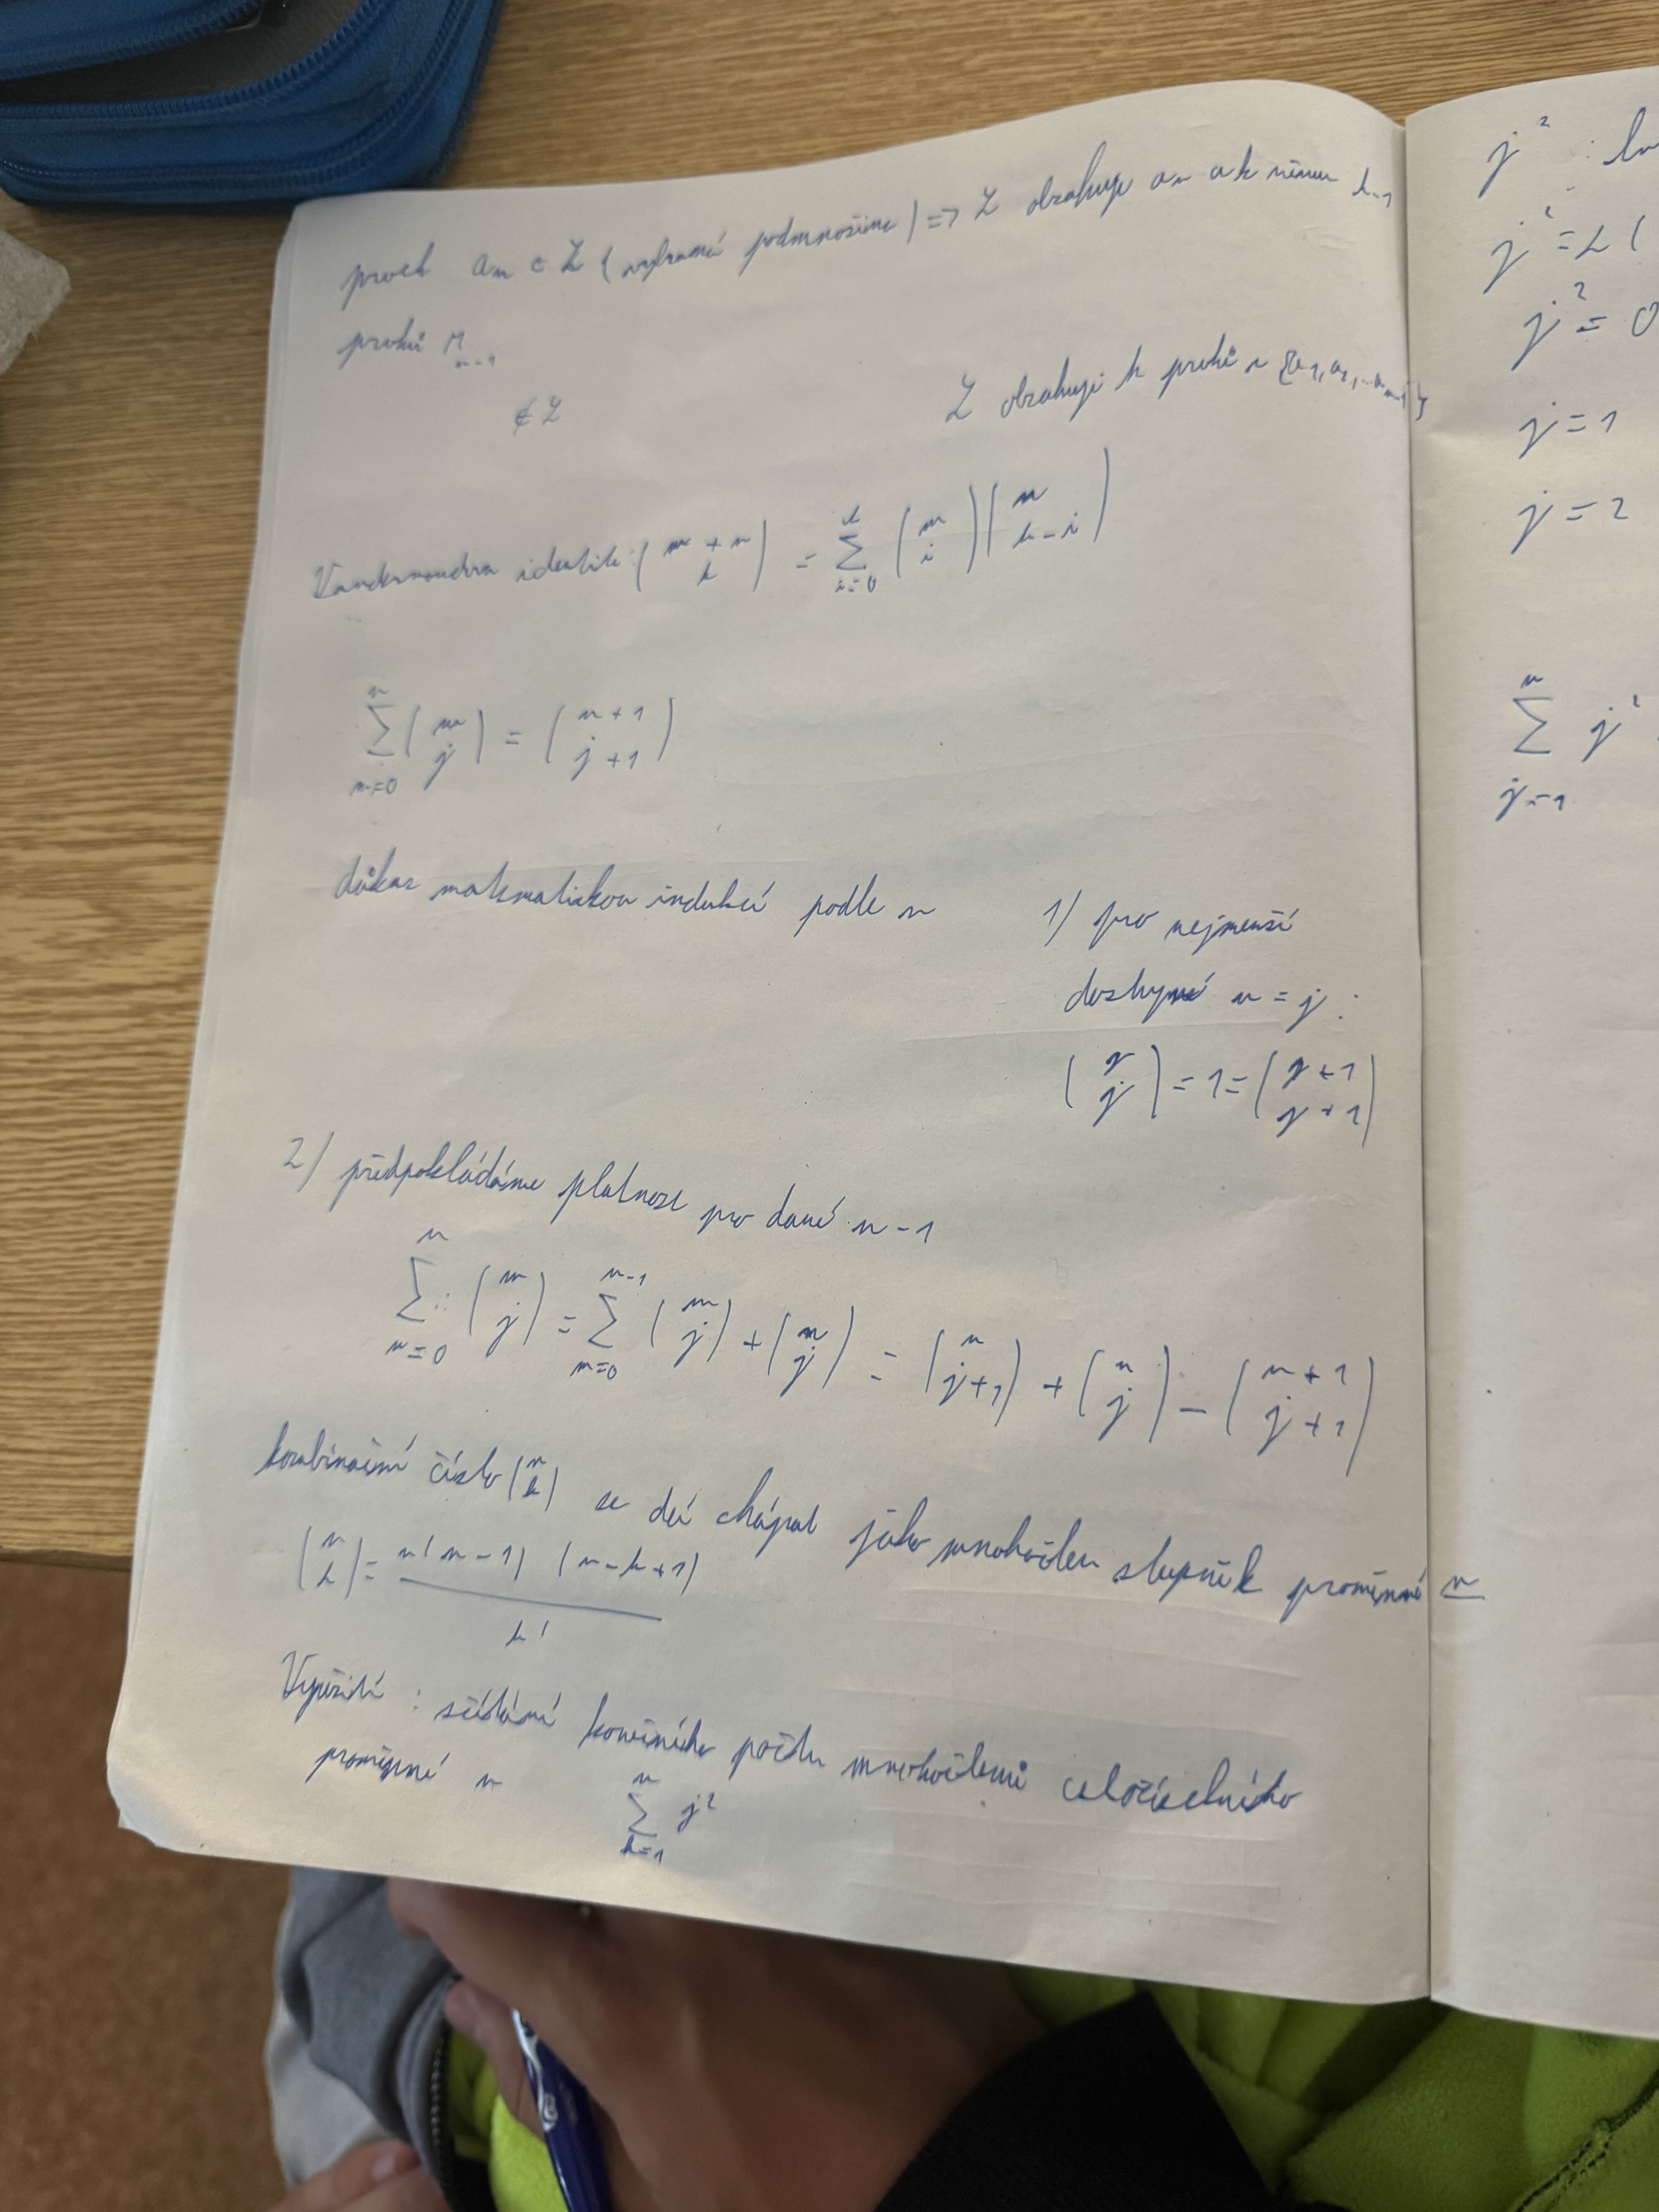 prvek aₙ ∈ Z (vybrané podmnožině) => Z obsahuje aₙ a k němu k-1
prvků M_{n-1}
∉ Z Z obsahuje k prvků z {a₁, a₂, ... a_{n-1}}
Vandermondova identita: \binom{m+n}{k} = \sum_{i=0}^{k} \binom{m}{i} \binom{n}{k-i}
\sum_{m=0}^{n} \binom{m}{j} = \binom{n+1}{j+1}
důkaz matematickou indukcí podle n 1) pro nejmenší
n = j :
\binom{j}{j} = 1 = \binom{j+1}{j+1}
2) předpokládáme platnost pro dané n-1
\sum_{m=0}^{n} \binom{m}{j} = \sum_{m=0}^{n-1} \binom{m}{j} + \binom{n}{j} = \binom{n}{j+1} + \binom{n}{j} - \binom{n+1}{j+1}
kombinační číslo \binom{n}{k} se dá chápat jako mnohočlen stupně k proměnné n
\binom{n}{k} = \frac{n(n-1) (n-k+1)}{k!}
Využití : sčítání konečného počtu mnohočlenů celočíselného
proměnné n \sum_{k=1}^{n} j²
j² :
j² = 2(
j² = 0
j = 1
j = 2
\sum_{j=1}^{n} j²